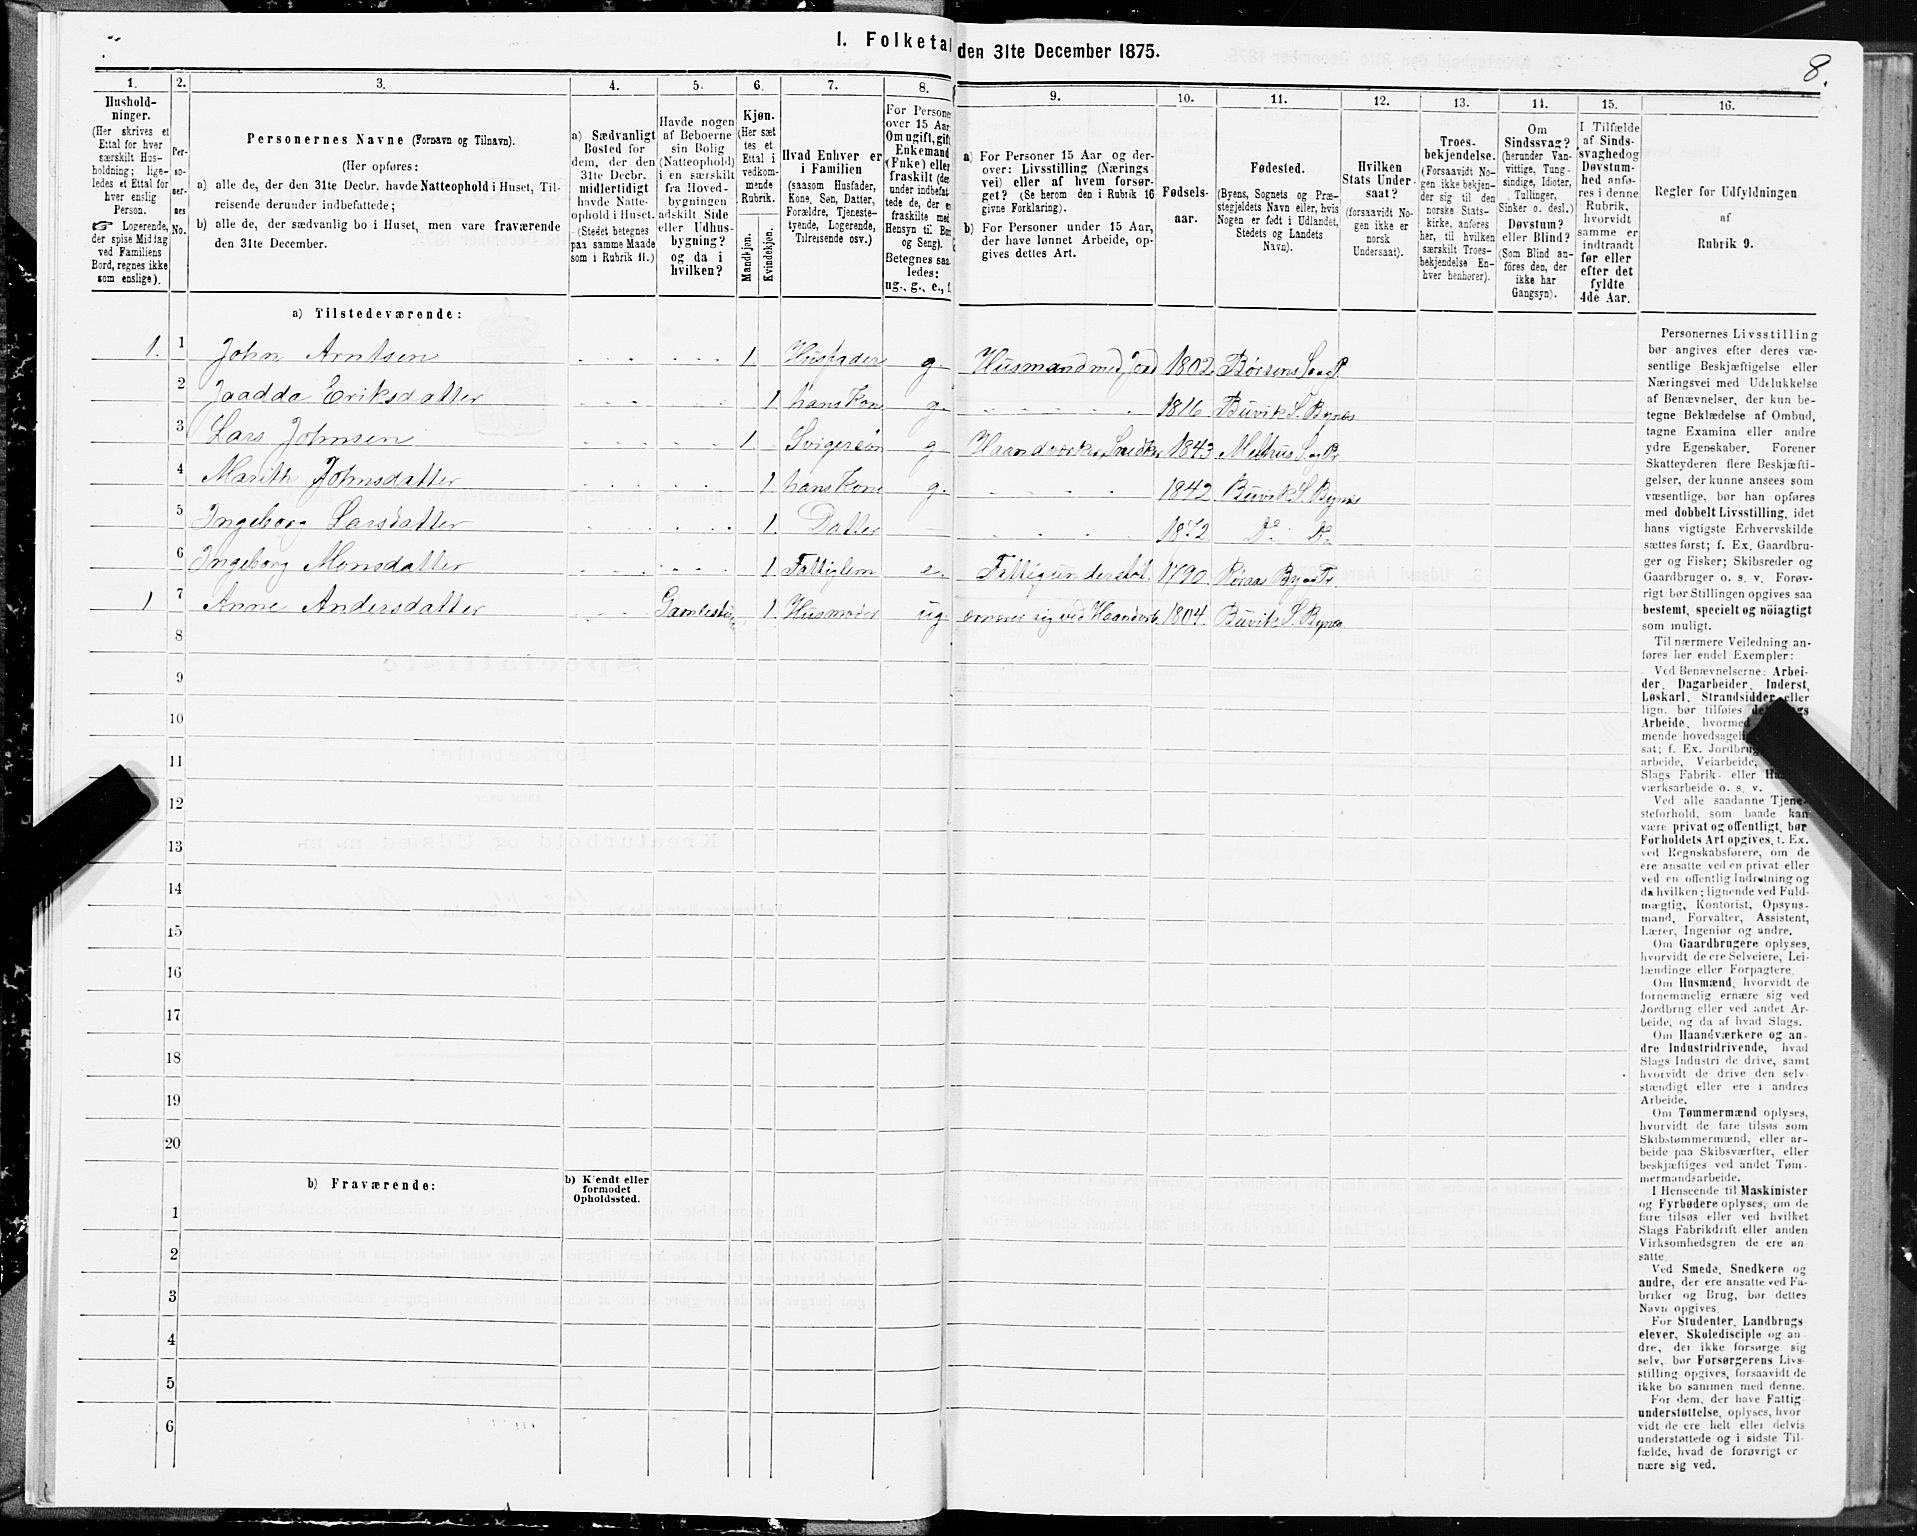 1. Folketal den 31te December 1875.
8.
1. 2. 3. 4. 5. 6. 7. 8. 9. 10. 11. 12. 13. 14. 15. 16.
Hushold-
ninger.
(Her skrives et
Ettal for hver
særskilt Hus-
holdning; lige-
ledes et Ettal for
hver enslig
Person.
☞ Logerende,
der spise Middag
ved Familiens
Bord, regnes ikke
som enslige).
Per-
so-
ner-
nes
No.
Personernes Navne (Fornavn og Tilnavn).
(Her opføres:
a) alle de, der den 31te Decbr. havde Natteophold i Huset, Til-
reisende derunder indbefattede;
b) alle de, der sædvanlig bo i Huset, men vare fraværende
den 31te December.
a) Sædvanligt
Bosted for
dem, der den
31te Decbr.
midlertidigt
havde Natte-
ophold i Huset.
(Stedet betegnes
paa samme Maade
som i Rubrik 11.)
Havde nogen
af Beboerne
sin Bolig
(Natteophold)
i en særskilt
fra Hoved-
bygningen
adskilt Side
eller Udhus-
bygning?
og da i
hvilken?
Kjøn.
(Her sæt
tes et
Ettal i
vedkom-
mende
Rubrik.
Mandkjøn.
Kvindekjøn.
Hvad Enhver er
i Familien
(saasom Husfader,
Kone, Søn, Datter,
Forældre, Tjeneste-
tyende, Logerende,
Tilreisende osv.)
For Persone
over 15 Aar
Om ugift, gift
Enkemand
(Enke) eller
fraskilt (der
under indbefat
tede de, der er
fraskilte med
Hensyn til Bor
og Seng).
Betegnes saa
ledes:
ug., g., e., f.
a) For Personer 15 Aar og der-
over: Livsstilling (Nærings
vei) eller af hvem forsør-
get? (Se herom den i Rubrik 16
givne Forklaring).
b) For Personer under 15 Aar,
der have lønnet Arbeide, op-
gives dettes Art.
Fødsels-
aar.
Fødested.
(Byens, Sognets og Præ-
stegjeldets Navn eller, hvis
Nogen er født i Udlandet,
Stedets og Landets
Navn).
Hvilken
Stats Under-
saat?
(forsaavidt No-
gen ikke er
norsk
Undersaat).
Troes-
bekjendelse.
(Forsaavidt No-
gen ikke bekjen-
der sig til den
norske Stats-
kirke, anføres
her, til hvilken
særskilt Troes-
bekjendelse En-
hver henhører).
Om
Sindssvag?
(herunder Van-
vittige, Tung-
sindige, Idioter,
Tullinger,
Sinker o. desl.)
Døvstum?
eller Blind?
(Som Blind an-
føres den, der
ikke har
Gangsyn).
I Tilfælde
af Sinds-
svaghed og
Døvstum-
hed anfø-
res i denne
Rubrik,
hvorvidt
samme er
indtraadt
før eller
efter det
fyldte
4de Aar.
Regler for Udfyldningen
af
Rubrik 9.
a) Tilstedeværende:
1. 1 John Arntsen 1. Husfader g. Husmand med Jord 1802 Børsens S. og P.
2 Jaadda Eriksdatter 1. hans Kone g. 1816 Buvik S. Bynes
3 Lars Johnsen 1. Svigersøn g. Haandværker, Snedker 1843 Melhus S. og Pr.
4 Marith Johnsdatter 1. hans Kone g. 1842 Buvik S. Bynes
5 Ingeborg Larsdatter 1. Datter 1872 Do. Do.
6 Ingeborg Monsdatter 1. Fattiglem e. Fattigunderstøt. 1790
1 7 Anne Andersdatter 1. Husmoder ug. ernærer sig ved Haandarb. 1804. Buvik S. Bynes
8
9
10
11
12
13
14
15
16
17
18
19
20
b) Fraværende:
b) Kjendt eller
formodet
Opholdssted.
1
2
3
4
5
6
Personernes Livsstilling
bør angives efter deres væ-
sentlige Beskjæftigelse eller
Næringsvei med Udelukkelse
af Benævnelser, der kun be-
tegne Beklædelse af Ombud,
tagne Examina eller andre
ydre Egenskaber. Forener
Skatteyderen flere Beskjæfti-
gelser, der kunne ansees som
væsentlige, bør han opføres
med dobbelt Livsstilling, idet
hans vigtigste Erhvervskilde
sættes først; f. Ex. Gaardbru-
ger og Fisker; Skibsreder og
Gaardbruger o. s. v. Forøv-
rigt bør Stillingen opgives saa
bestemt, specielt og nøiagtigt
som muligt.
Til nærmere Veiledning an-
føres her endel Exempler:
Ved Benævnelserne: Arbei-
der, Dagarbeider, Inderst,
Løskarl, Strandsidder eller
lign. bør tilføies
Arbeide, hvormed
mende hovedsagelig
sat; f. Ex. Jordbrug
arbeide, Veiarbeide,
Slags Fabrik- eller
værksarbeide o. s. v.
Ved alle saadanne Tjene-
steforhold, som baade kan
være privat og offentligt, bør
Forholdets Art opgives, t. Ex.
ved Regnskabsførere, om de
ere ansatte ved en privat eller
ved en offentlig Indretning og
da hvilken; lignende ved Fuld-
mægtig, Kontorist, Opsyns-
mand, Forvalter, Assistent,
Lærer, Ingeniør og andre.
Om Gaardbrugere oplyses,
hvorvidt de ere Selveiere, Lei-
lændinge eller Forpagtere.
Om Husmænd, hvorvidt de
fornemmelig ernære sig ved
Jordbrug eller ved andet Ar-
beide, og da af hvad Slags.
Om Haandværkere og an-
dre Industridrivende, hvad
Slags Industri de drive, samt
hvorvidt de drive den selv-
stændigt eller ere i andres
Arbeide.
Om Tømmermænd oplyses,
hvorvidt de fare tilsøs som
Skibstømmermænd, eller ar-
beide paa Skibsværfter, eller
beskjæftiges ved andet Tøm-
mermandsarbeide.
I Henseende til Maskinister
og Fyrbødere oplyses, om de
fare tilsøs eller ved hvilket
Slags Fabrikdrift eller anden
Virksomhedsgren de ere an
satte.
Ved Smede, Snedkere og
andre, der ere ansatte ved Fa-
briker og Brug, bør dettes
Navn opgives.
For Studenter, Landbrugs
elever, Skoledisciple og an-
dre, der ikke forsørge sig
selv, bør Forsørgerens Livs-
stilling opgives, forsaavidt de
ikke bo sammen med denne.
For dem, der have Fattig-
understøttelse, oplyses, hvor
vidt de ere helt eller delvis
understøttede og i sidste Til-
fælde, hvad de forøvrigt er
nære sig ved.